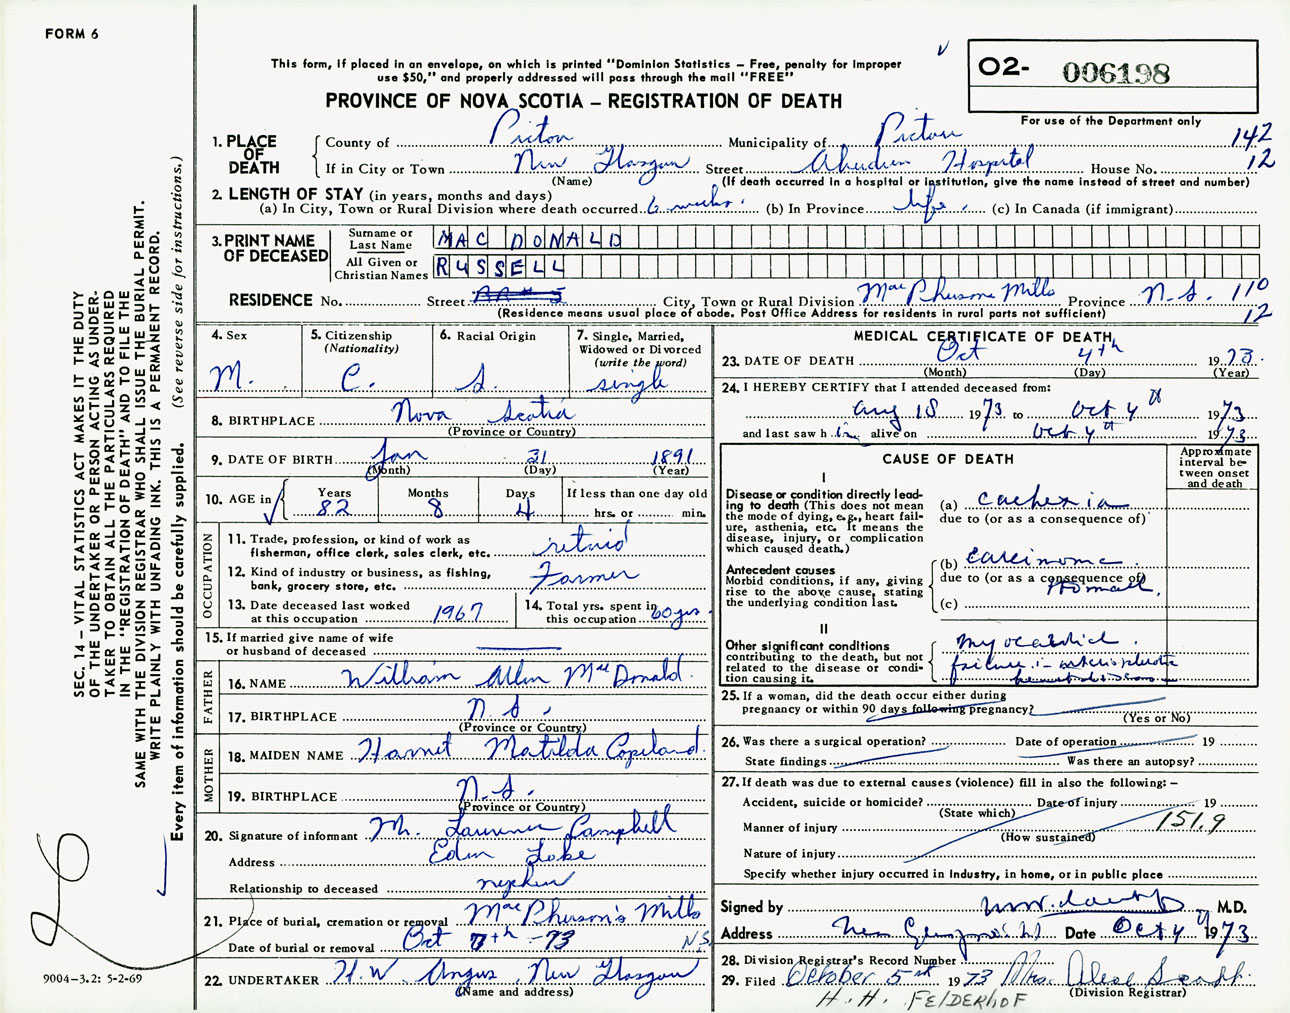 FORM 6
This form, if placed in an envelope, on which is printed "Dominion Statistics – Free, penalty for improper
use $50," and properly addressed will pass through the mail "FREE"
O2- 006198
For use of the Department only
PROVINCE OF NOVA SCOTIA – REGISTRATION OF DEATH
1. PLACE OF DEATH
County of Pictou Municipality of Pictou 142
If in City or Town New Glasgow Street Aberdeen Hospital House No. 12
(Name) (If death occurred in a hospital or institution, give the name instead of street and number)
2. LENGTH OF STAY (in years, months and days)
(a) In City, Town or Rural Division where death occurred 6 weeks. (b) In Province life. (c) In Canada (if immigrant)
3. PRINT NAME OF DECEASED
Surname or Last Name MAC DONALD
All Given or Christian Names RUSSELL
RESIDENCE No. Street City, Town or Rural Division MacPhersons Mills Province N.S. 110
(Residence means usual place of abode. Post Office Address for residents in rural parts not sufficient) 12
4. Sex M.
5. Citizenship (Nationality) C.
6. Racial Origin S.
7. Single, Married, Widowed or Divorced (write the word) single
8. BIRTHPLACE Nova Scotia
(Province or Country)
9. DATE OF BIRTH Jan 31 1891
(Month) (Day) (Year)
10. AGE in Years 82 Months 8 Days 4 If less than one day old hrs. or min.
OCCUPATION
11. Trade, profession, or kind of work as fisherman, office clerk, sales clerk, etc. retired
12. Kind of industry or business, as fishing, bank, grocery store, etc. Farmer
13. Date deceased last worked at this occupation 1967
14. Total yrs. spent in this occupation 60 yrs.
15. If married give name of wife or husband of deceased
FATHER
16. NAME William Allen MacDonald
17. BIRTHPLACE N.S.
(Province or Country)
MOTHER
18. MAIDEN NAME Harriet Matilda Copeland
19. BIRTHPLACE N.S.
(Province or Country)
20. Signature of informant Mr. Laurence Campbell
Address Eden Lake
Relationship to deceased nephew
21. Place of burial, cremation or removal MacPherson's Mills
Date of burial or removal Oct 7th -73 N.S.
22. UNDERTAKER H.W. Angus New Glasgow
(Name and address)
MEDICAL CERTIFICATE OF DEATH
23. DATE OF DEATH Oct 4th 1973.
(Month) (Day) (Year)
24. I HEREBY CERTIFY that I attended deceased from:
Aug 18 1973 to Oct 4th 1973
and last saw him alive on Oct 4th 1973
CAUSE OF DEATH
Approximate interval between onset and death
I
Disease or condition directly leading to death (This does not mean the mode of dying, e.g., heart failure, asthenia, etc. It means the disease, injury, or complication which caused death.)
(a) cachexia
due to (or as a consequence of)
Antecedent causes
Morbid conditions, if any, giving rise to the above cause, stating the underlying condition last.
(b) carcinoma
due to (or as a consequence of)
stomach.
(c)
II
Other significant conditions contributing to the death, but not related to the disease or condition causing it.
myocardial
failure
25. If a woman, did the death occur either during pregnancy or within 90 days following pregnancy?
(Yes or No)
26. Was there a surgical operation? Date of operation 19
State findings Was there an autopsy?
27. If death was due to external causes (violence) fill in also the following:–
Accident, suicide or homicide? Date of injury 19
(State which)
Manner of injury 151.9
(How sustained)
Nature of injury
Specify whether injury occurred in industry, in home, or in public place
Signed by M.D.
Address Date Oct 4 1973
28. Division Registrar's Record Number
29. Filed October 5 1973 Mrs.
(Division Registrar)
H. H. FELDERHOF
SEC. 14 – VITAL STATISTICS ACT MAKES IT THE DUTY
OF THE UNDERTAKER OR PERSON ACTING AS UNDER-
TAKER TO OBTAIN ALL THE PARTICULARS REQUIRED
IN THE "REGISTRATION OF DEATH" AND TO FILE THE
SAME WITH THE DIVISION REGISTRAR WHO SHALL ISSUE THE BURIAL PERMIT.
WRITE PLAINLY WITH UNFADING INK. THIS IS A PERMANENT RECORD.
Every item of information should be carefully supplied. (See reverse side for instructions.)
26
9004-3.2: 5-2-69